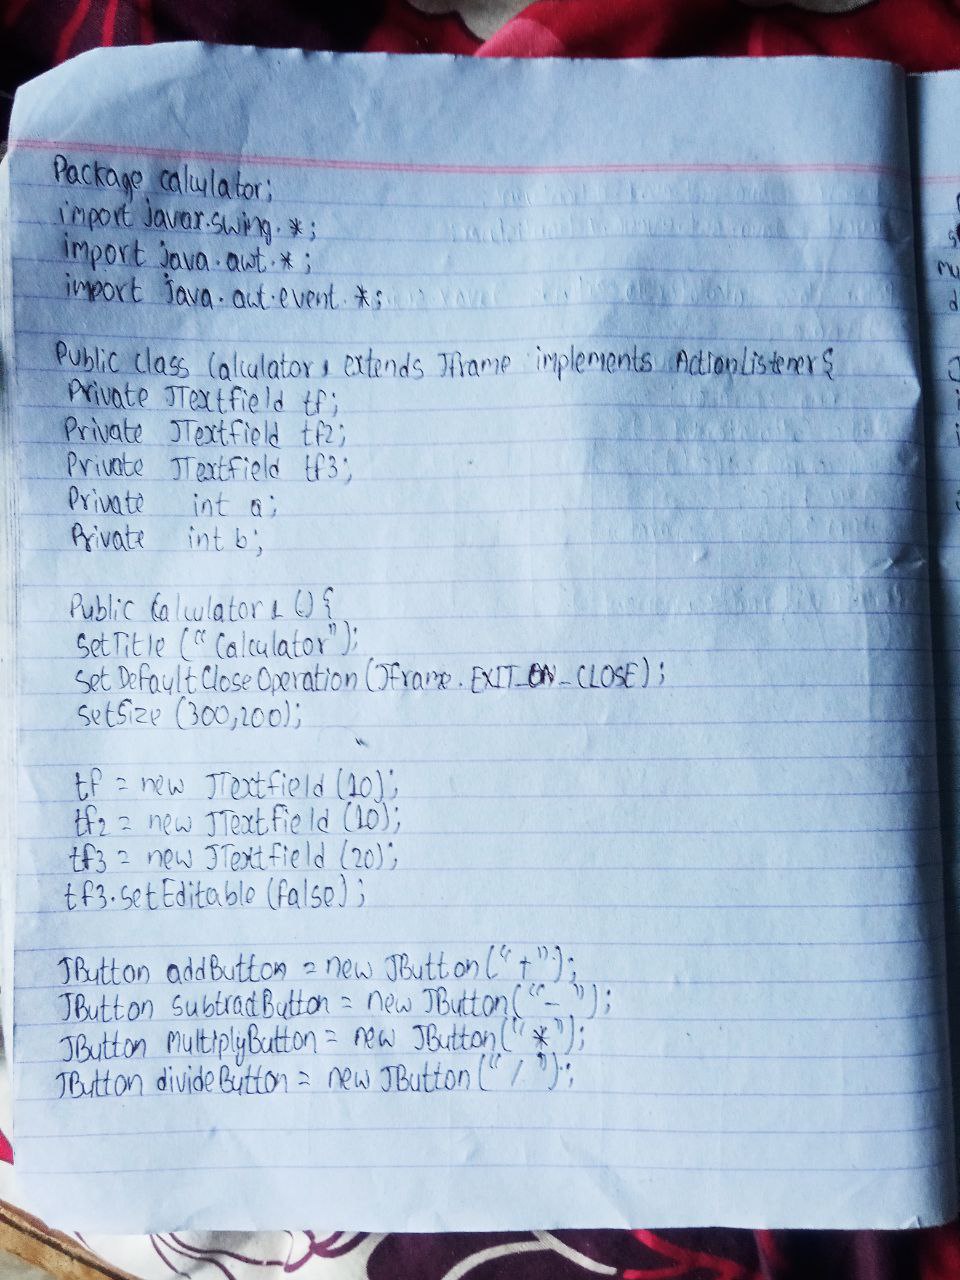 Package calculator;
import javax.swing.*;
import java.awt.*;
import java.awt.event.*;
Public class Calculator1 extends Jframe implements ActionListener{
Private JTextfield tf;
Private JTextfield tf2;
Private JTextfield tf3;
Private int a;
Private int b;
Public Calculator1 () {
SetTitle ("Calculator");
Set DefaultCloseOperation (Jframe.EXIT_ON_CLOSE);
SetSize (300,200);
tf = new JTextfield (10);
tf2 = new JTextfield (10);
tf3 = new JTextfield (20);
tf3.setEditable (false);
JButton addButton = new JButton("+");
JButton subtractButton = new JButton("-");
JButton multiplyButton = new JButton("*");
JButton divideButton = new JButton("/");